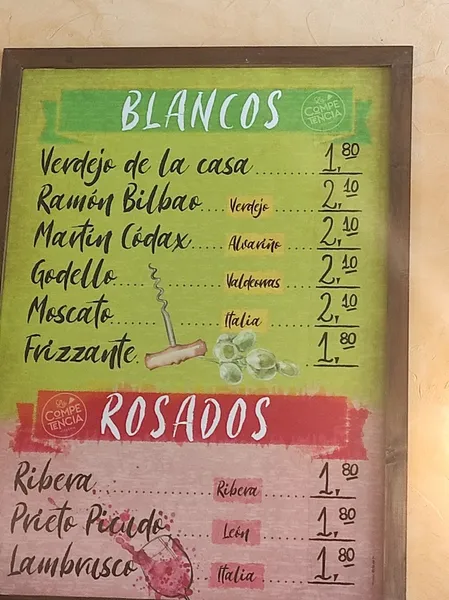 BLANCOS
La COMPETENCIA
Verdejo de la casa 1,80
Ramón Bilbao Verdejo 2,10
Martín Códax Alvariño 2,10
Godello Valdeorras 2,10
Moscato Italia 2,10
Frizzante 1,80
La COMPETENCIA
ROSADOS
Ribera Ribera 1,80
Prieto Picudo León 1,80
Lambrusco Italia 1,80